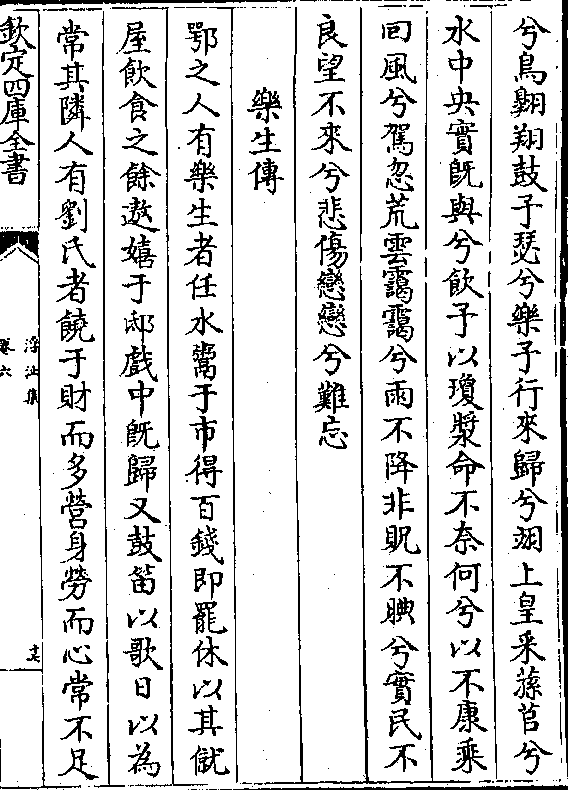 兮鳥翱翔鼓予瑟兮樂予行來歸兮翊上皇采蓀苕兮
水中央實旣與兮飮予以瓊漿命不奈何兮以不康乘
回風兮駕忽荒雲靄靄兮雨不降非貺不腆兮實民不
良望不來兮悲傷戀戀兮難忘
樂生傳
鄂之人有樂生者任水鬻于市得百錢即罷休以其僦
屋飮食之餘遨嬉于邸戲中旣歸又鼓笛以歌日以為
常其隣人有劉氏者饒于財而多營身勞而心常不足
欽定四庫全書
浮沚集
卷六